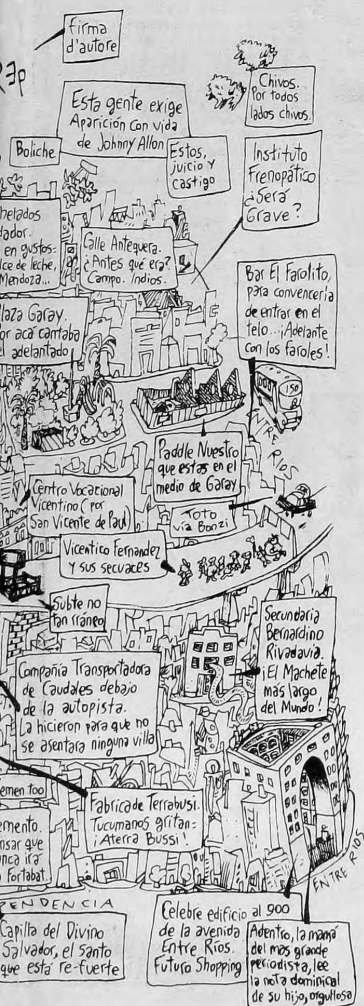 firma
d'autore
Rep
Chivos.
Por todos
lados chivos.
Esta gente exige
Aparición con vida
de Johnny Allon
Boliche
Estos,
juicio y
castigo
Instituto
Frenopático
¿Será
Grave?
helados
dador.
en gustos:
lce de leche,
Mendoza...
Calle Antequera.
¿Antes qué era?
Campo. Indios.
Bar El Farolito,
para convencerla
de entrar en el
telo...¡Adelante
con los faroles!
laza Garay.
or acá cantaba
el adelantado
150
ENTRE RIOS
Paddle Nuestro
que estás en el
medio de Garay
Centro Vocacional
Vicentino (por
San Vicente de Paul)
Toto
vía Bonzi
Vicentico Fernandez
y sus secuaces
Subte no
tan rráneo
Secundaria
Bernardino
Rivadavia.
¡El Machete
más largo
del Mundo!
Compañía Transportadora
de Caudales debajo
de la autopista.
La hicieron para que no
se asentara ninguna villa
emen too
Fabrica de Terrabusi.
Tucumanos gritan:
¡Aterra Bussi!
emento.
nsar que
nca ira
fortabat.
ENTRE RIOS
PENDENCIA
Capilla del Divino
Salvador, el santo
que está re-fuerte
Celebre edificio al 900
de la avenida
Entre Ríos.
Futuro Shopping
Adentro, la mamá
del más grande
periodista, lee
la nota dominical
de su hijo, orgullosa